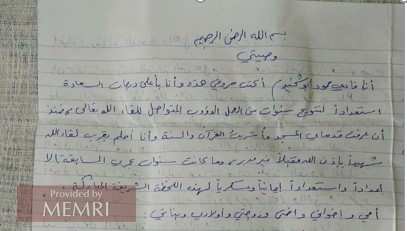 بسم الله الرحمن الرحيم
وصيتي
أنا فادي محمود أبو أكتب هذه وأنا بأعلى درجات السعادة
استعداداً لتتويج سنوات من العمل الدؤوب المتواصل للقاء الله تعالى
أن القرآن والسنة وأنا أعلم بقرب لقاء الله
شهيداً بإذن الله مقبلاً غير مدبر وما كانت سنوات السابقة إلا
إعداداً واستعداداً إيمانياً وعسكرياً لهذه اللحظة
أمي وإخواني وأختي وزوجتي وأولادي وبناتي :
Provided by
MEMRI